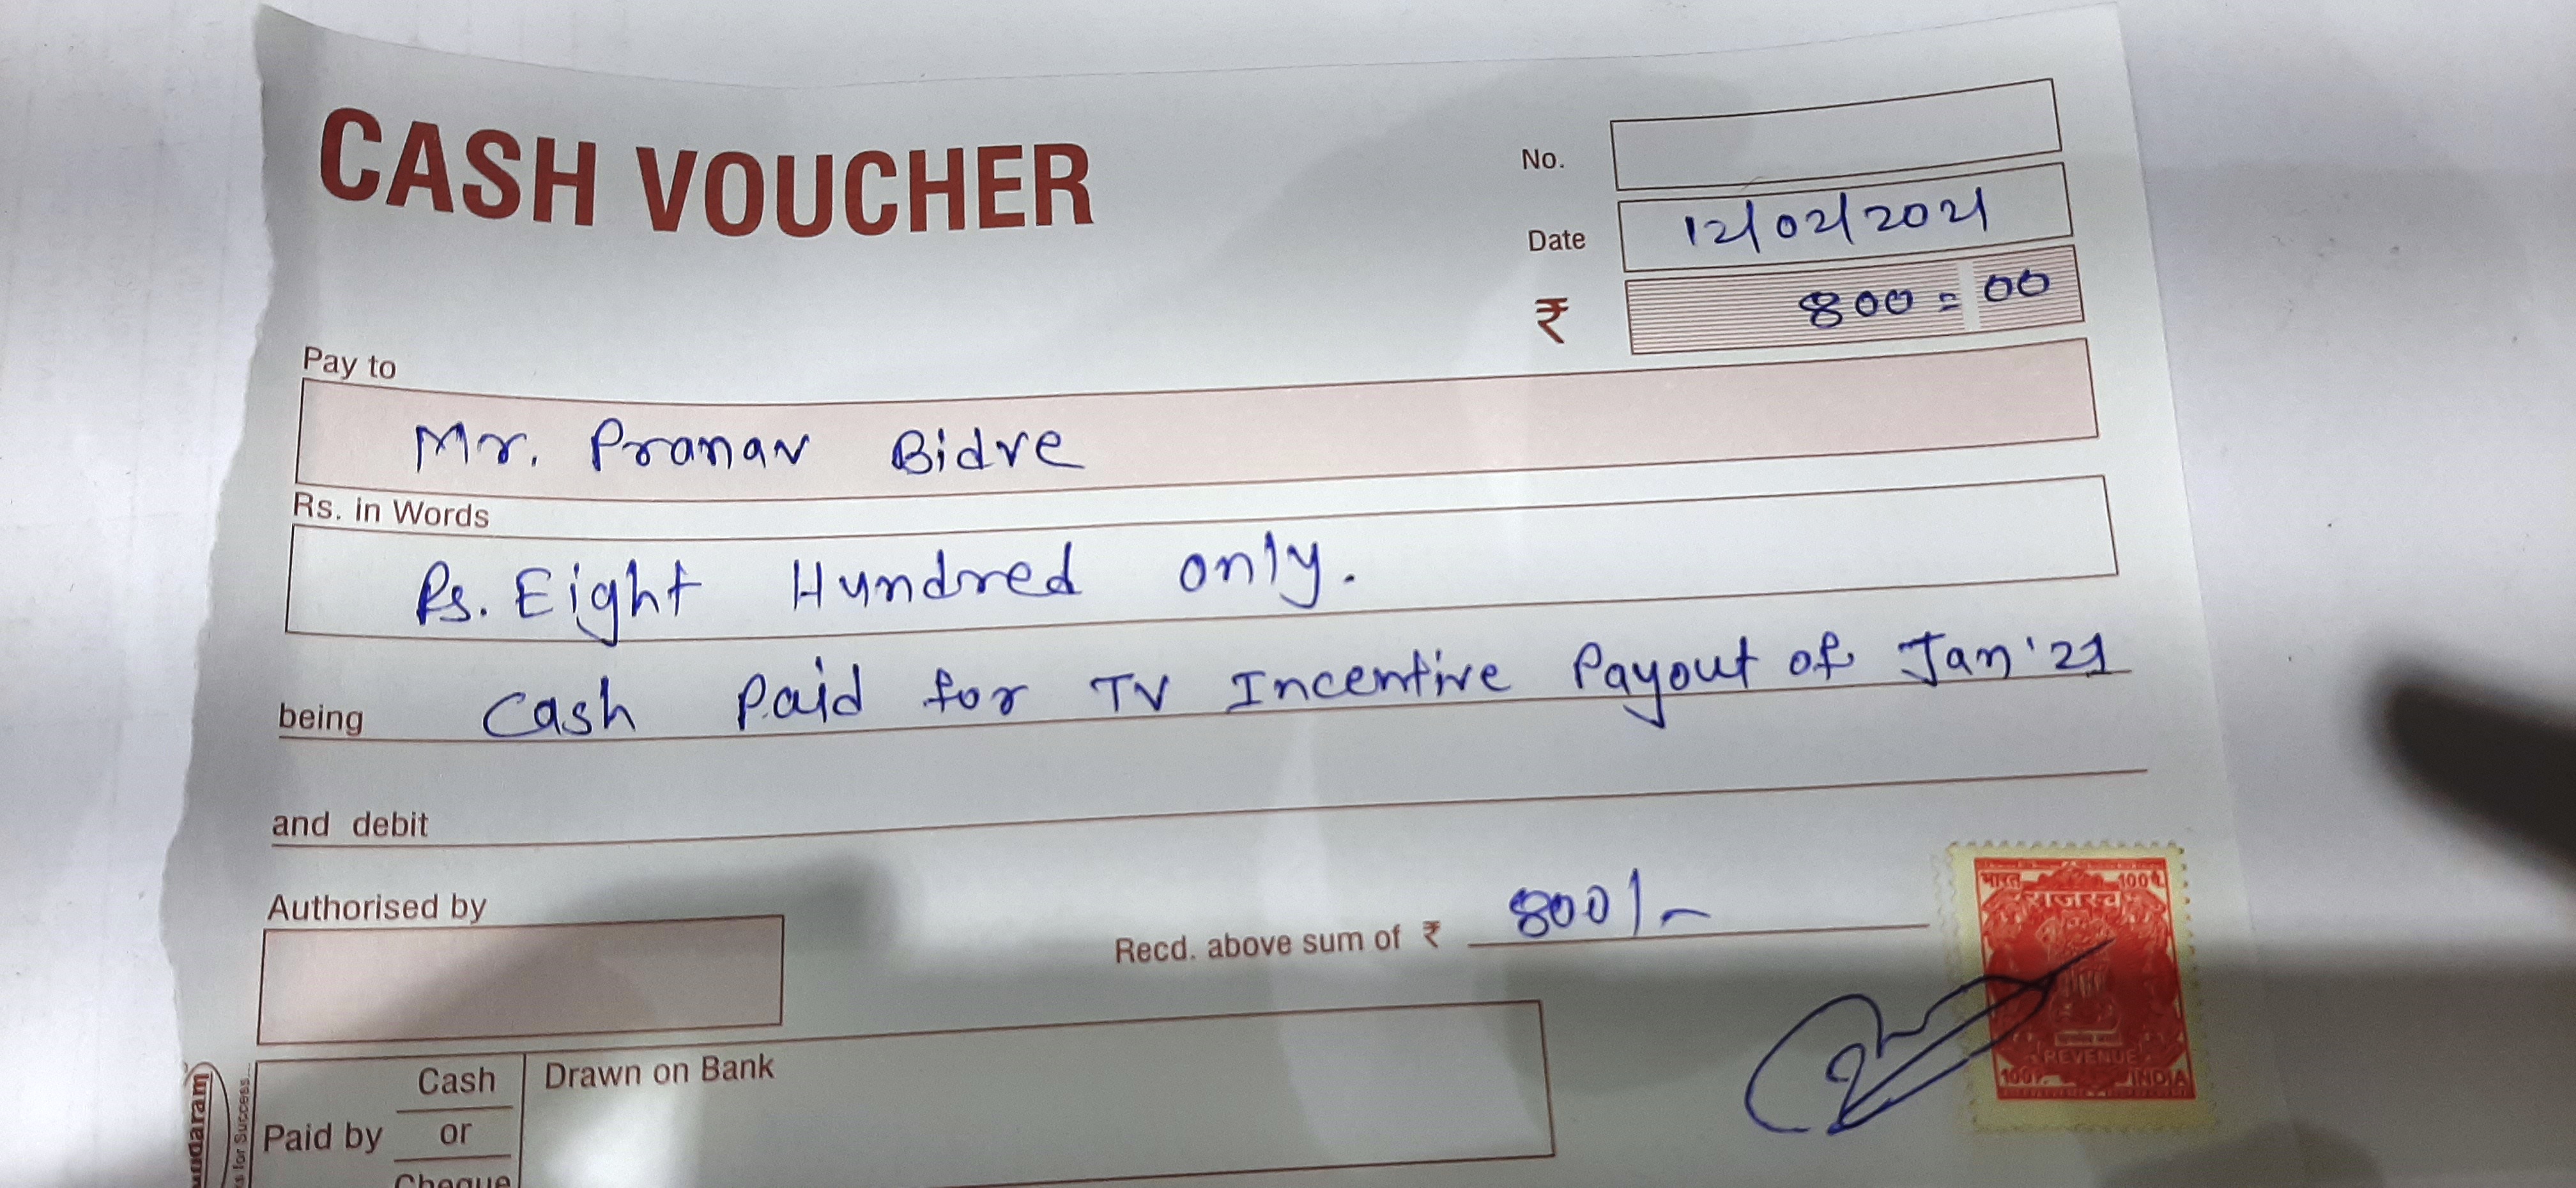 CASH VOUCHER
No.
Date 12/02/2021
₹ 800=00
Pay to
Mr. Pranav Bidve
Rs. in Words
Rs. Eight Hundred only.
being Cash Paid for TV Incentive Payout of Jan'21
and debit
Authorised by
Recd. above sum of ₹ 800/-
भारत 100पै.
राजस्व
REVENUE
100P. INDIA
Paid by Cash or Cheque
Drawn on Bank
undaram
for Success...